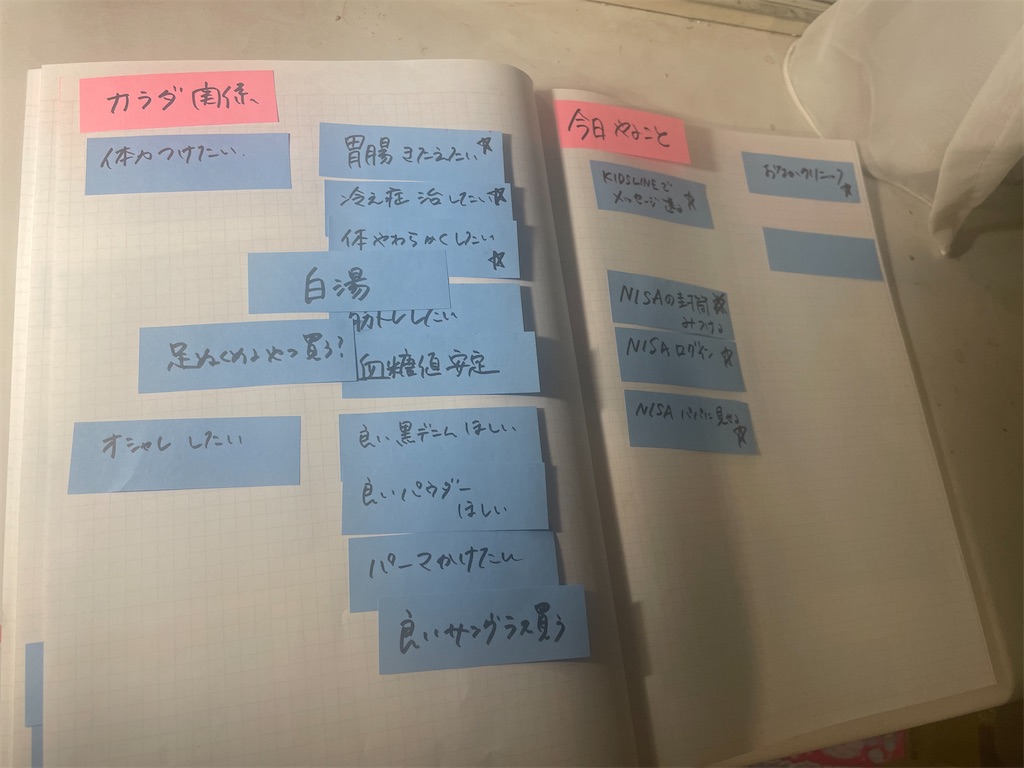 カラダ関係
体力つけたい
胃腸きたえたい☆
冷え症 治したい☆
体やわらかくしたい
☆
白湯
筋トレしたい
足ぬくめるやつ買う?
血糖値安定
オシャレしたい
良い黒デニムほしい
良いパウダー
ほしい
パーマかけたい
良いサングラス買う
今日やること
KIDSLINEで
メッセージ送る☆
おなかクリニック
☆
NISAの封筒☆
みつける
NISAログイン☆
NISAパパに見せる
☆